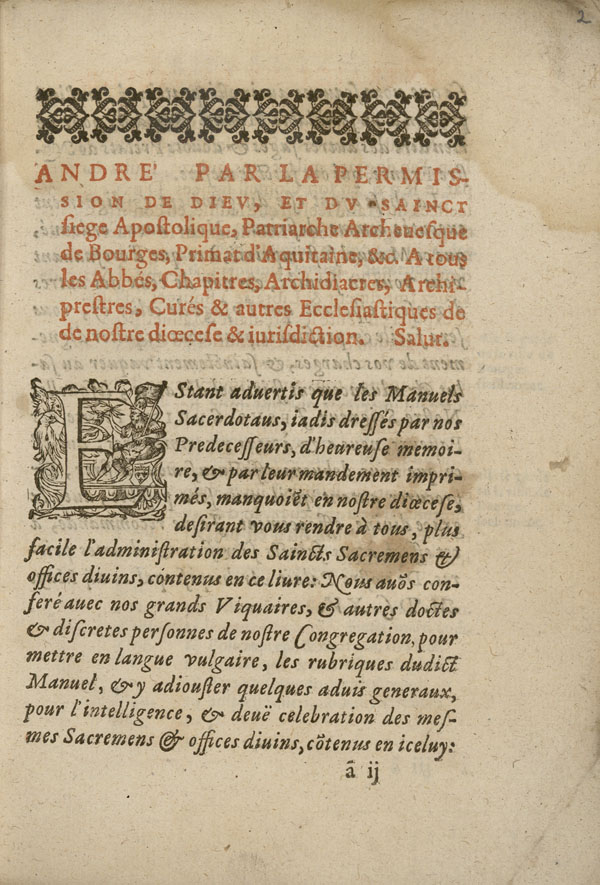 2
ANDRE' PAR LA PERMIS-
SION DE DIEV, ET DV SAINCT
ſiege Apoſtolique, Patriarche Archeueſque
de Bourges, Primat d'Aquitaine, &c. A tous
les Abbés, Chapitres, Archidiacres, Archi-
preſtres, Curés & autres Eccleſiaſtiques de
de noſtre diœceſe & iuriſdiction. Salut.
EStant aduertis que les Manuels
Sacerdotaus, iadis dreſſés par nos
Predeceſſeurs, d'heureuſe memoi-
re, & par leur mandement impri-
més, manquoiēt en noſtre diœceſe,
deſirant vous rendre à tous, plus
facile l'adminiſtration des Saincts Sacremens &
offices diuins, contenus en ce liure: Nous auōs con-
feré auec nos grands Viquaires, & autres doctes
& diſcretes perſonnes de noſtre Congregation, pour
mettre en langue vulgaire, les rubriques dudict
Manuel, & y adiouſter quelques aduis generaux,
pour l'intelligence, & deuë celebration des meſ-
mes Sacremens & offices diuins, cōtenus en iceluy:
ā ij